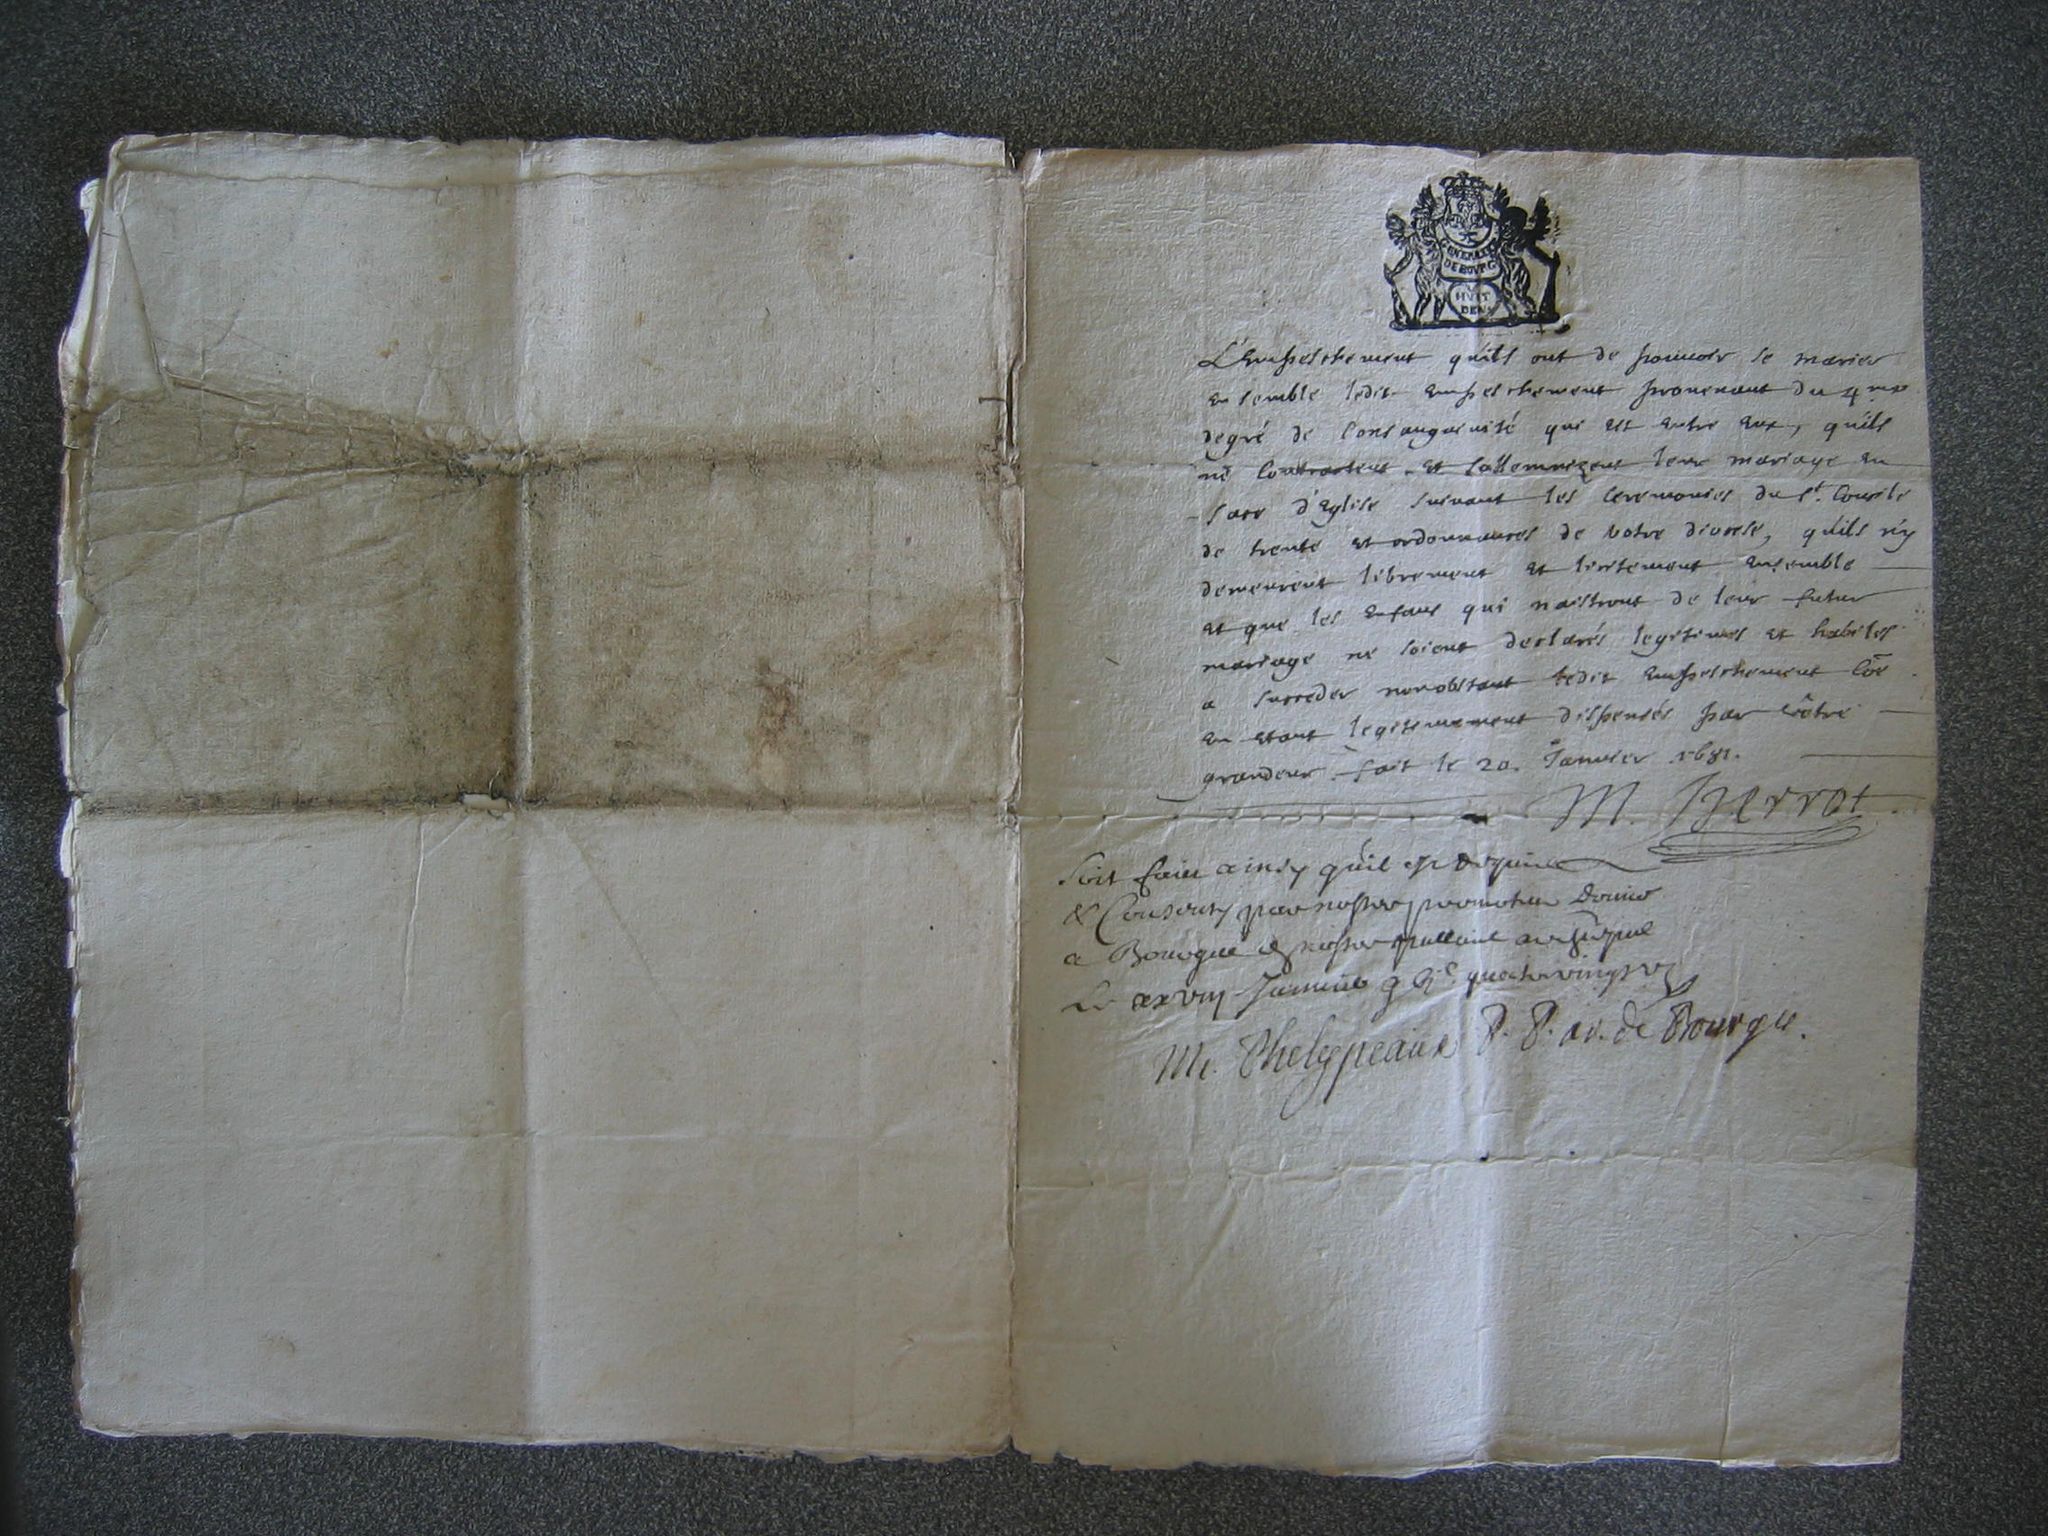 GENERALITE
DE BOURG
HVIT
DEN
L'Empeschement quils ont de pouvoir se marier
ensemble ledit empeschement provenant du 4me
degré de Consanguinité qui est entre eux, quils
ne Contractent et sollemnizent leur mariage en
face d'Eglise suivant les ceremonies du St. Concile
de trente et ordonnances de votre diocese, quils n'y
demeurent librement et licitement ensemble
et que les enfans qui naistront de leur futur
mariage ne soient declarés legitimes et habiles
a succeder nonobstant ledit empeschement Côe
en etant legitimement dispensés par vôtre
grandeur. fait le 20. Janvier 1681.
M. Perrot
Soit faict ainsy quil est requis
& Consenty par nostre promoteur Donné
a Bourges en nostre pallais archiepiscopal
Le xxviij Janvier quatrevingt
Mi. Phelypeaux P. P. ar. de Bourges.